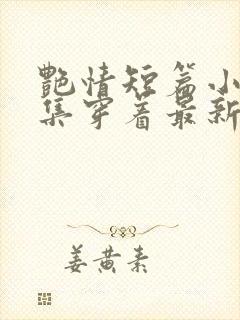 艷情短篇小
集穿着最新
姜黄素